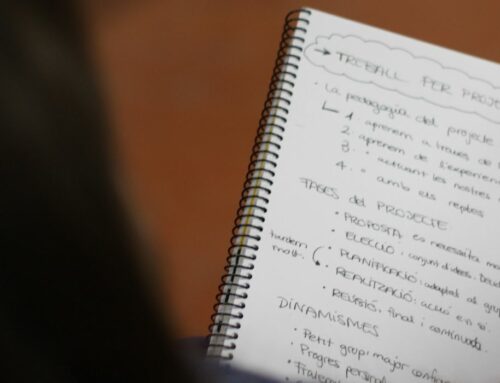 → TREBALL PER PROJE
· La pedagogia del projecte
1 aprenem a través de
2. aprenem de l'experien
3. " activant les nostres
4. " amb els reptes
FASES del PROJECTE
· PROPOSTA: es necessita mo
· ELECCIÓ: conjunt d'idees. Decid
tardem molt.
· PLANIFICACIÓ: adaptat al gru
· REALITZACIÓ: acció en si.
· REVISIÓ, final i continuada.
DINAMISMES
· Petit grup: major confian
· Progrés person